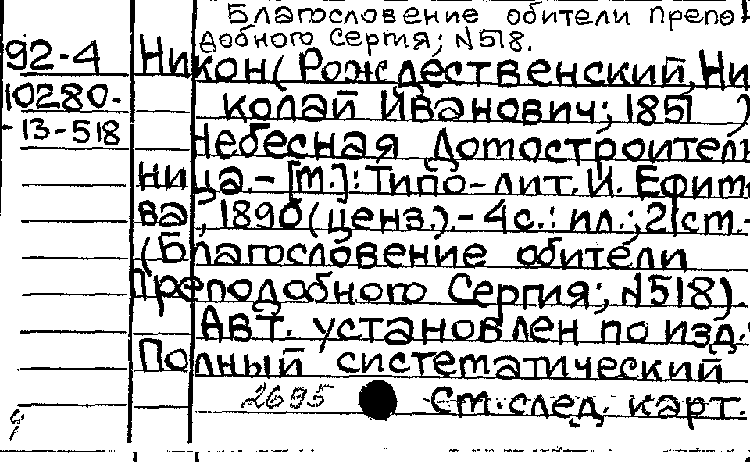 Благословение обители препо-
добного Сергия; N518.
92-4 Никон (Рождественский, Ни
10280- колай Иванович; 1851 )
-13-518 Небесная домостроитель
ница. - [М.]: Типо-лит. И. Ефимо
ва, 1890 (ценз.). - 4с.: ил.; 21см. -
(Благословение обители
Преподобного Сергия; N518).
Авт. установлен по изд.:
Полный систематический
2695 См. след. карт.